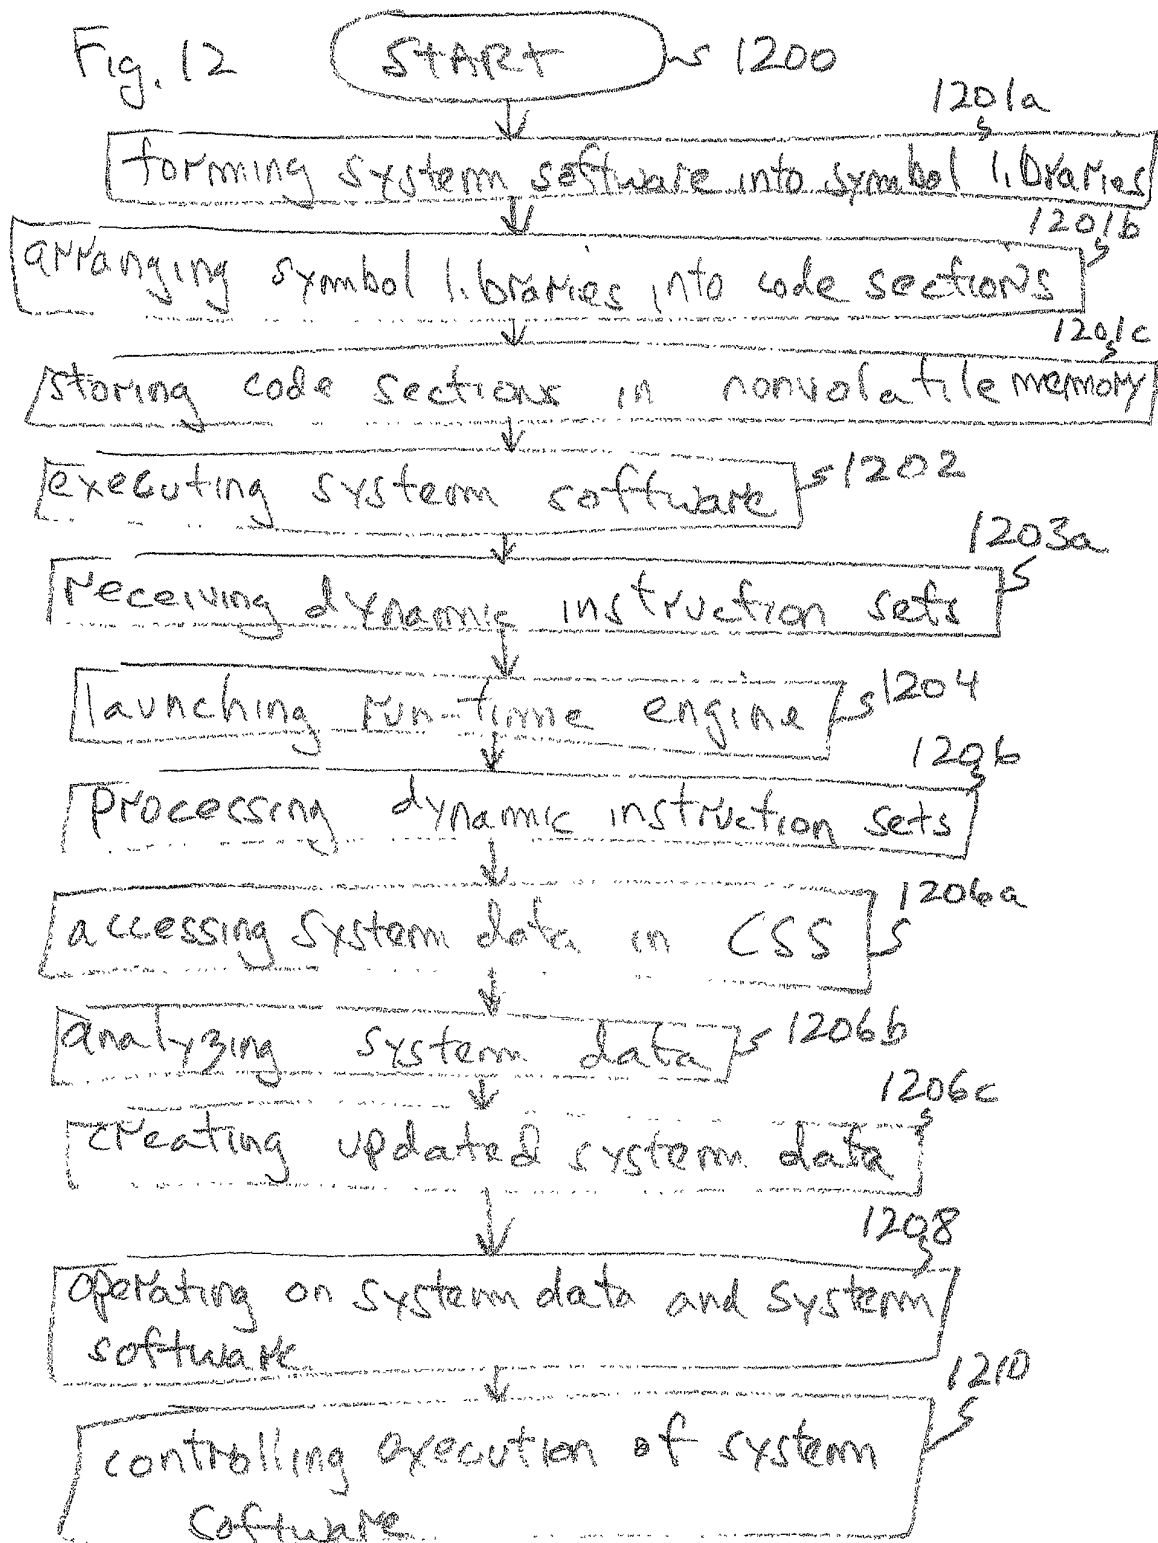 Fig. 12
START
1200
1201a
forming system software into symbol libraries
1201b
arranging symbol libraries into code sections
1201c
storing code sections in nonvolatile memory
executing system software
1202
1203a
receiving dynamic instruction sets
launching run-time engine
1204
1206
processing dynamic instruction sets
1206a
accessing system data in CSS
analyzing system data
1206b
1206c
creating updated system data
1208
operating on system data and system
software
1210
controlling execution of system
software